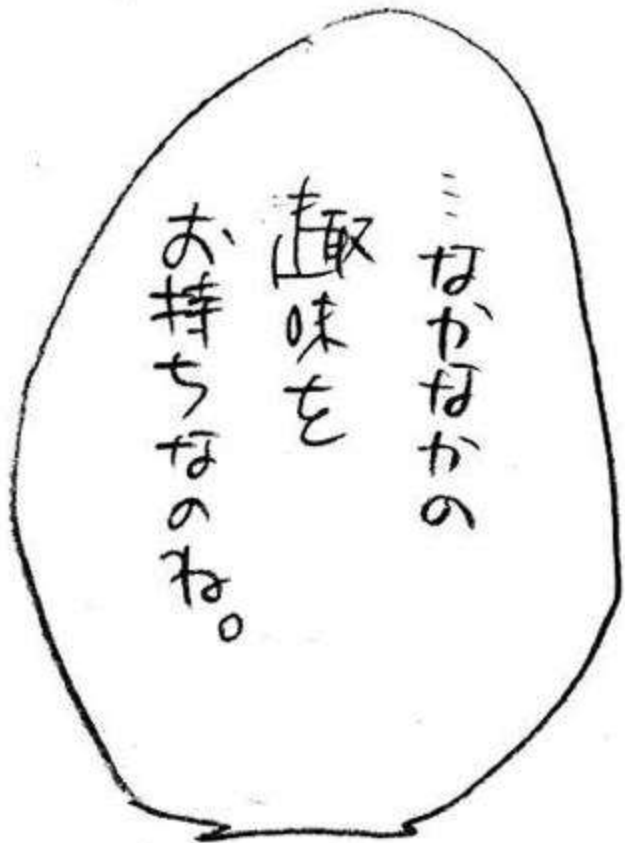 …なかなかの
趣味を
お持ちなのね。